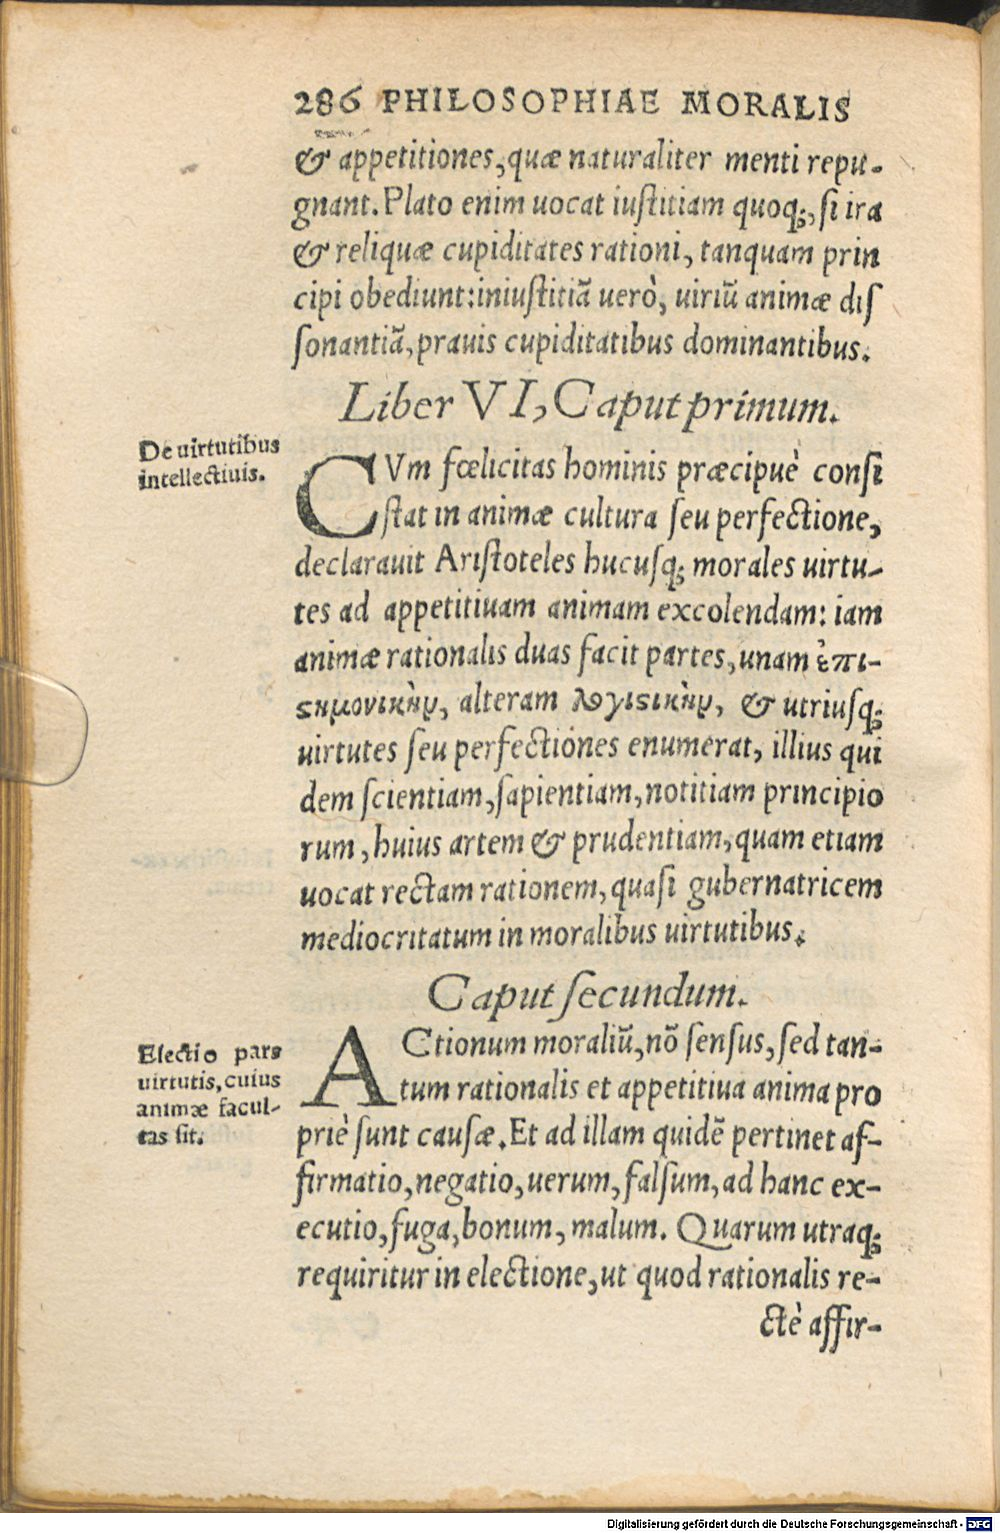 286 PHILOSOPHIAE MORALIS
& appetitiones, quæ naturaliter menti repu-
gnant. Plato enim uocat iuſtitiam quoq;, ſi ira
& reliquæ cupiditates rationi, tanquam prin
cipi obediunt: iniuſtitiã uerò, uiriũ animæ diſ
ſonantiã, prauis cupiditatibus dominantibus.
Liber VI, Caput primum.
De uirtutibus
intellectiuis.
CVm fœlicitas hominis præcipuè conſi
ſtat in animæ cultura ſeu perfectione,
declarauit Ariſtoteles hucuſq; morales uirtu-
tes ad appetitiuam animam excolendam: iam
animæ rationalis duas facit partes, unam ἐπι-
ϛημονικὴν, alteram λογιϛικὴν, & utriuſq;
uirtutes ſeu perfectiones enumerat, illius qui
dem ſcientiam, ſapientiam, notitiam principio
rum, huius artem & prudentiam, quam etiam
uocat rectam rationem, quaſi gubernatricem
mediocritatum in moralibus uirtutibus.
Caput ſecundum.
Electio pars
uirtutis, cuius
animæ facul-
tas ſit.
ACtionum moraliũ, nõ ſenſus, ſed tan-
tum rationalis et appetitiua anima pro
priè ſunt cauſæ. Et ad illam quidẽ pertinet af-
firmatio, negatio, uerum, falſum, ad hanc ex-
ecutio, fuga, bonum, malum. Quarum utraq;
requiritur in electione, ut quod rationalis re-
ctè affir-
Digitalisierung gefördert durch die Deutsche Forschungsgemeinschaft - DFG